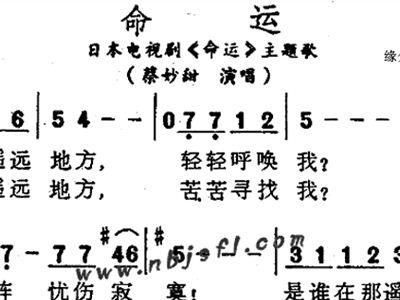 命 运
日本电视剧《命运》主题歌
(蔡妙甜 演唱)
缘
6 | 5 4 - - | 0 7 7 1 2 | 5 - - -
遥远 地方, 轻轻呼唤 我?
遥远 地方, 苦苦寻找 我?
7 - 7 7 #4 6 | #5 - - - | 3 1 1 2 3
阵 忧伤 寂 寞! 是谁在那遥